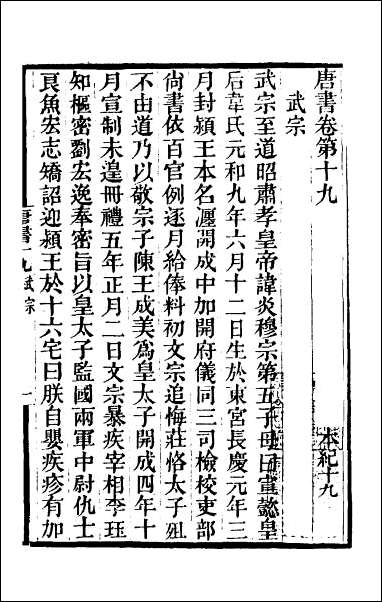 唐書卷第十九
本紀十九
武宗
武宗至道昭肅孝皇帝諱炎穆宗第五子母曰宣懿皇
后韋氏元和九年六月十二日生於東宮長慶元年三
月封潁王本名瀍開成中加開府儀同三司檢校吏部
尚書依百官例逐月給俸料初文宗追悔莊恪太子殂
不由道乃以敬宗子陳王成美爲皇太子開成四年十
月宣制未遑冊禮五年正月二日文宗暴疾宰相李珏
知樞密劉宏逸奉密旨以皇太子監國兩軍中尉仇士
良魚宏志矯詔迎潁王於十六宅曰朕自嬰疾疹有加
唐書十九武宗
一